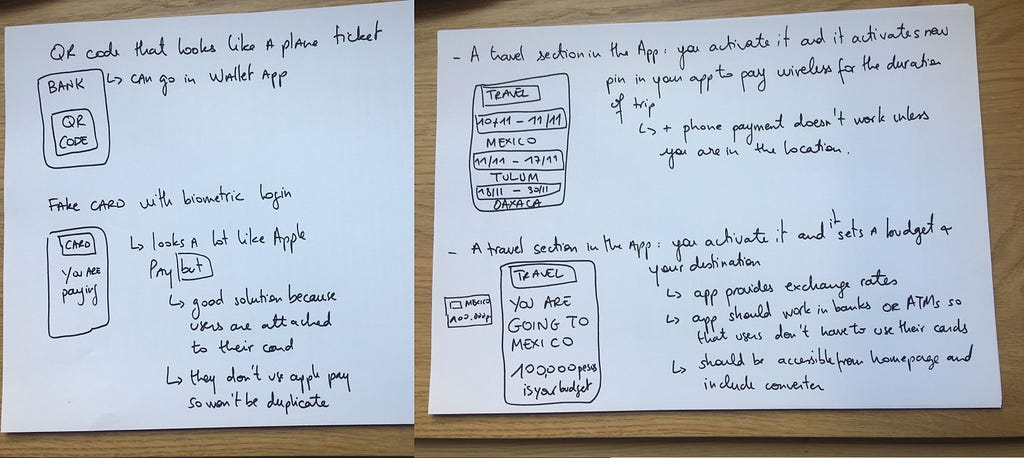 QR code that looks like a plane ticket
BANK
QR
CODE
↳ can go in Wallet App
FAKE CARD with biometric login
CARD
YOU ARE
paying
↳ looks a lot like Apple
Pay but
↳ good solution because
users are attached
to their card
↳ they don't use apple pay
so won't be duplicate
- A travel section in the App: you activate it and it activates new
pin in your app to pay wireless for the duration
of trip
↳ + phone payment doesn't work unless
you are in the location.
TRAVEL
10/11 - 11/11
MEXICO
11/11 - 17/11
TULUM
18/11 - 30/11
OAXACA
- A travel section in the App: you activate it and it sets a budget &
your destination
↳ app provides exchange rates
↳ app should work in banks OR ATMs so
that users don't have to use their cards
↳ should be accessible from homepage and
include converter
MEXICO
100.000p
TRAVEL
YOU ARE
GOING TO
MEXICO
100,000 pesos
is your budget